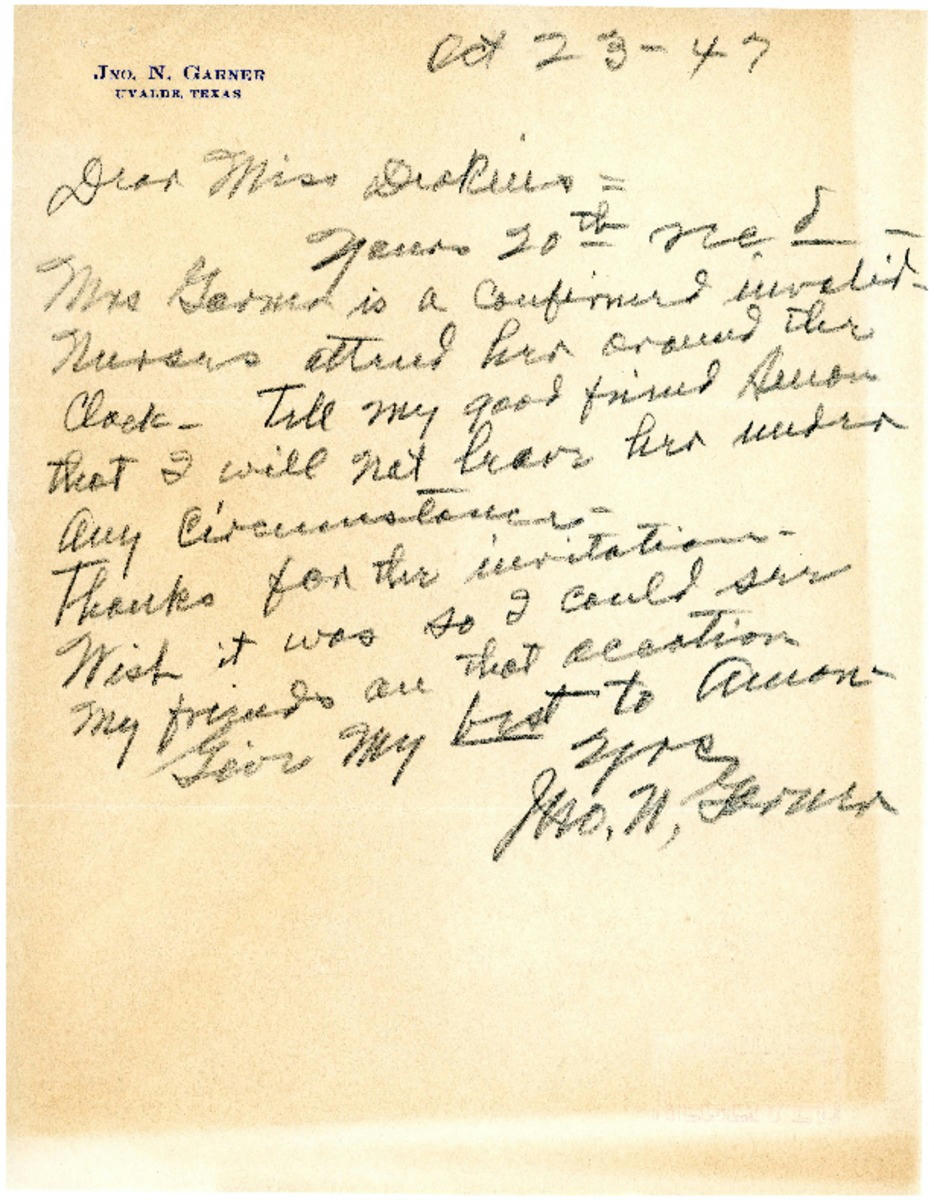 JNO. N. GARNER
UVALDE, TEXAS
Oct 23-47
Dear Miss Deakins =
Yours 20th recd -
Mrs Garner is a confirmed invalid-
Nurses attend her around the
Clock- Tell my good friend Amon
that I will not leave her under
any circumstance-
Thanks for the invitation-
Wish it was so I could see
My friends on that occation
Give My best to Amon-
Yrs
Jno. N. Garner